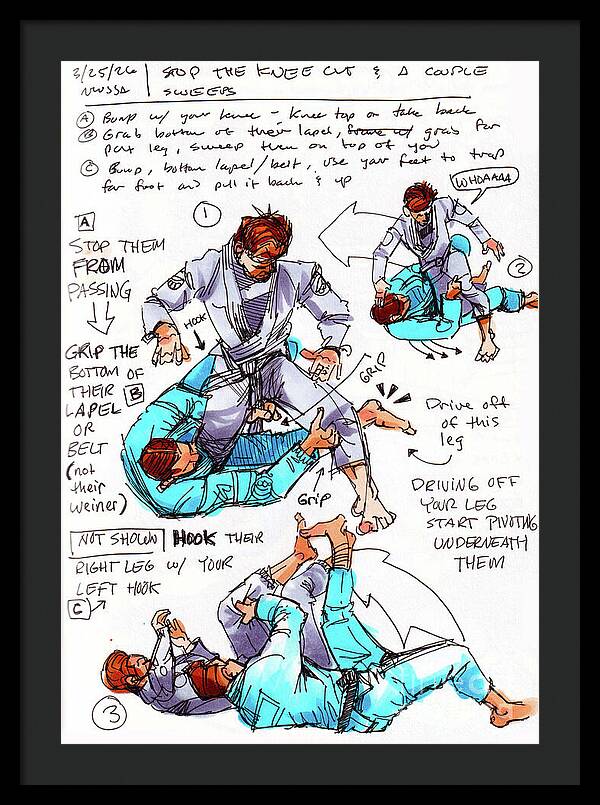 3/25/26 | STOP THE KNEE CUT & A COUPLE
NWSSA | SWEEPS
(A) Bump w/ your knee - knee top or take back
(B) Grab bottom of their lapel, grab far
part leg, sweep them on top of you
(C) Bump, bottom lapel/belt, use your feet to trap
far foot and pull it back & up
A
STOP THEM
FROM
PASSING
GRIP THE
BOTTOM OF
THEIR B
LAPEL
OR
BELT
(not
their
weiner)
1
HOOK
GRIP
GRIP
WHOAAAA
2
Drive off
of this
leg
DRIVING OFF
YOUR LEG
START PIVOTING
UNDERNEATH
THEM
NOT SHOWN HOOK THEIR
RIGHT LEG w/ YOUR
LEFT HOOK
C
3